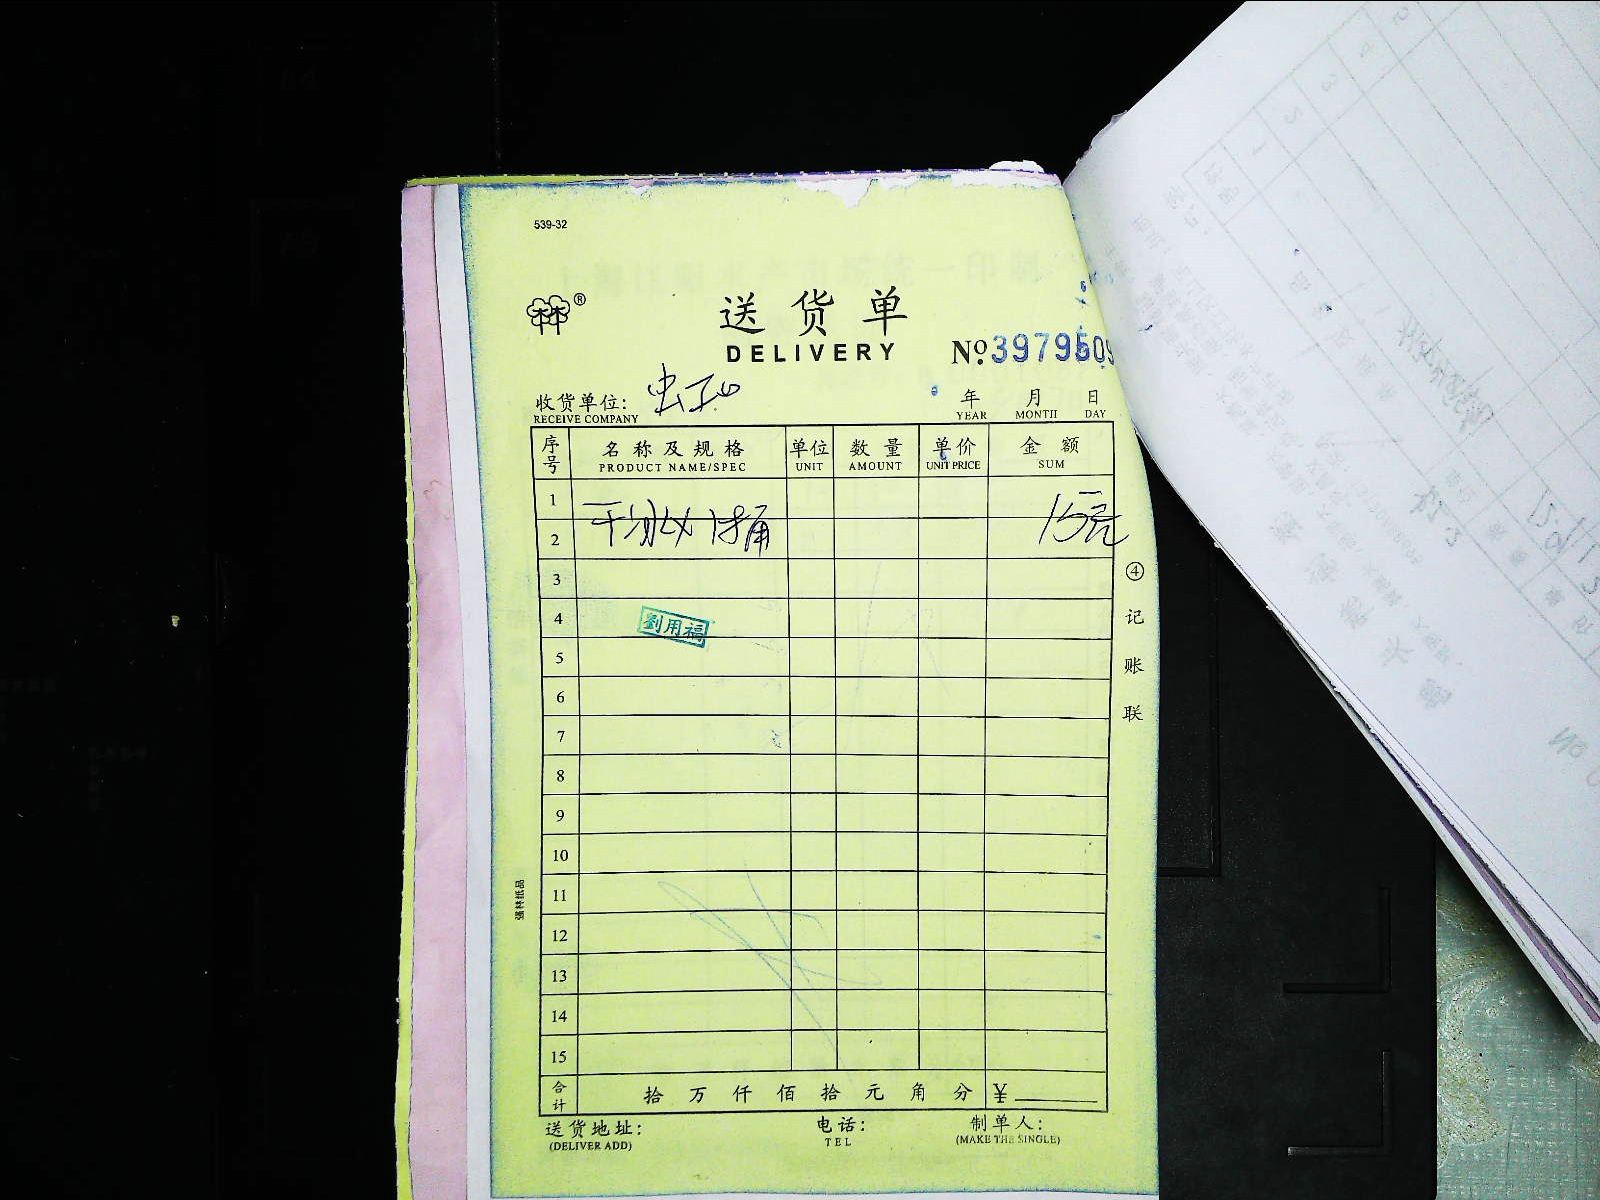 539-32
送货单
DELIVERY
№ 3979509
收货单位:
RECEIVE COMPANY
年 月 日
YEAR MONTH DAY
序号 名称及规格 单位 数量 单价 金额
PRODUCT NAME/SPEC UNIT AMOUNT UNIT PRICE SUM
1
2 干冰 1桶 15元
3
4 劉用福
5
6
7
8
9
10
11
12
13
14
15
合计 拾 万 仟 佰 拾 元 角 分 ¥
送货地址: 电话: 制单人:
(DELIVER ADD) TEL (MAKE THE SINGLE)
④记账联
强林纸品